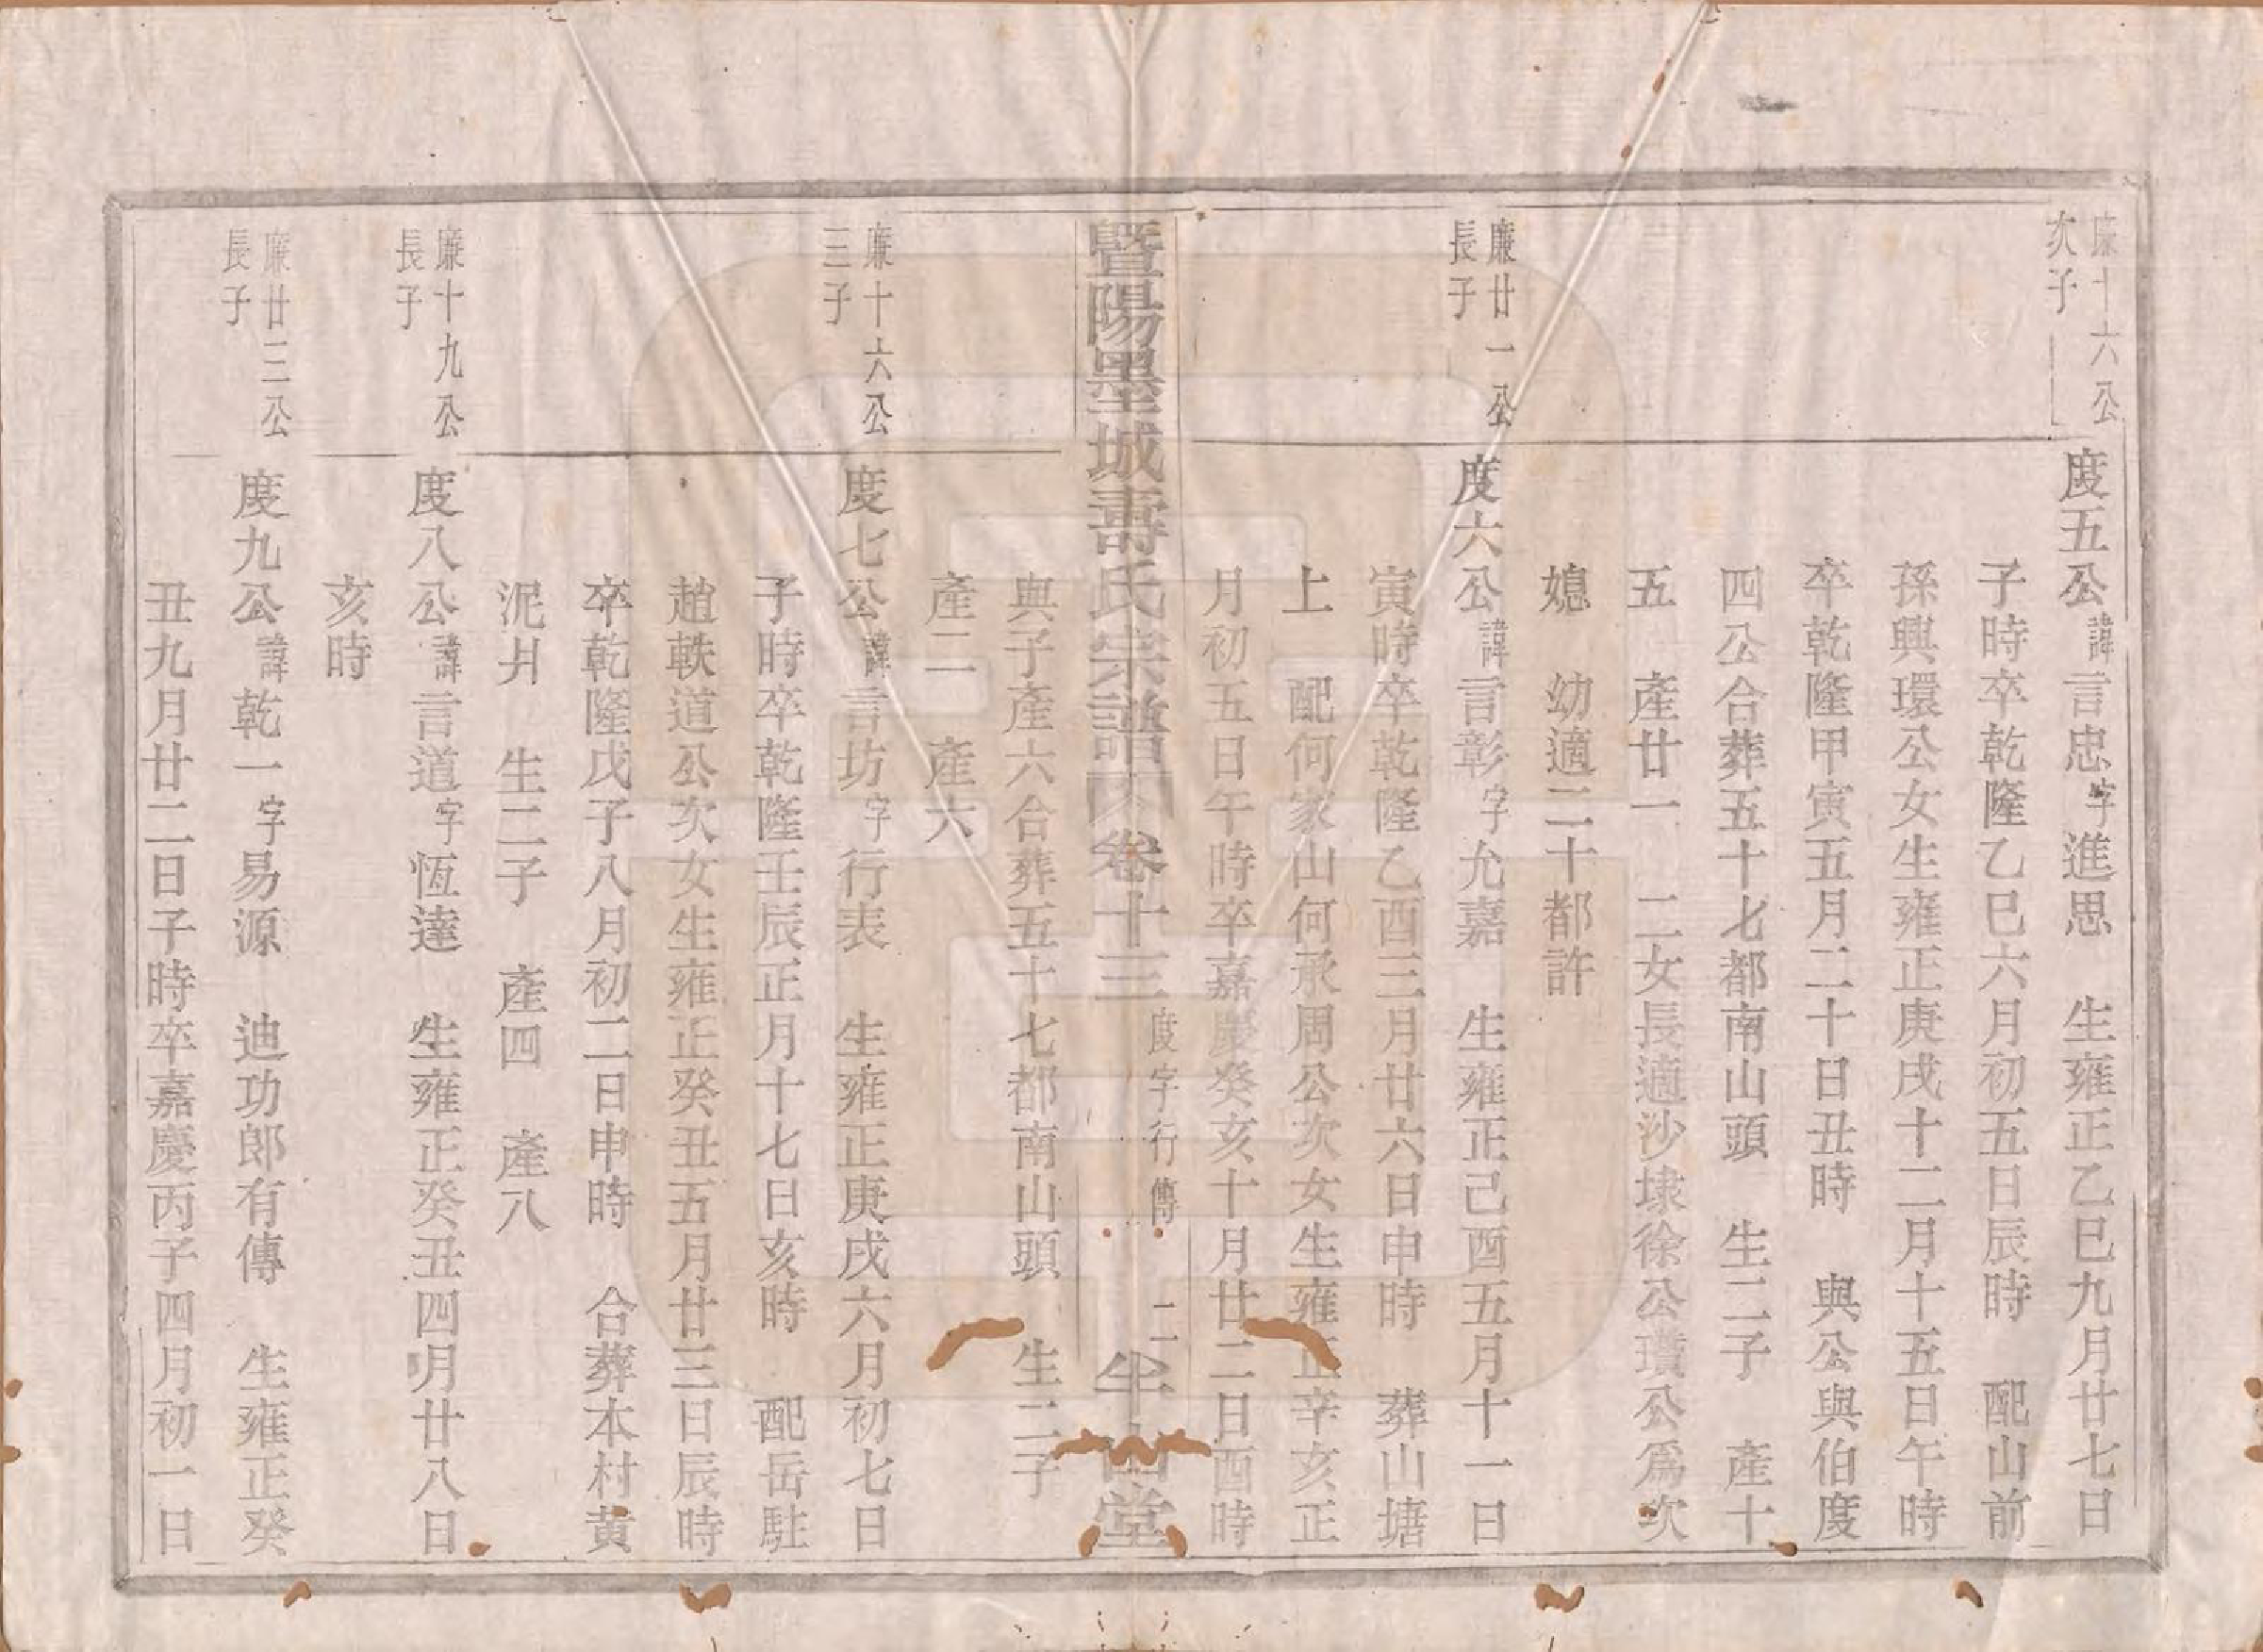 廉十六公
次子
度五公諱言忠字進思　生雍正乙巳九月廿七日
子時卒乾隆乙巳六月初五日辰時　配山前
孫興環公女生雍正庚戌十二月十五日午時
卒乾隆甲寅五月二十日丑時　與公與伯度
四公合葬五十七都南山頭　生二子　產十
五　產廿一　二女長適沙埭徐公璝公爲次
媳　幼適二十都許
廉廿一公
長子
度六公諱言彰字允嘉　生雍正己酉五月十一日
寅時卒乾隆乙酉三月廿六日申時　葬山塘
上　配何家山何承周公次女生雍正辛亥正
月初五日午時卒嘉慶癸亥十月廿二日酉時
暨陽墨城壽氏宗譜　卷十三　度字行傳　二　半山堂
與子產六合葬五十七都南山頭　生二子
產二　產六
廉十六公
三子
度七公諱言坊字行表　生雍正庚戌六月初七日
子時卒乾隆壬辰正月十七日亥時　配岳駐
趙軼道公次女生雍正癸丑五月廿三日辰時
卒乾隆戊子八月初二日申時　合葬本村黄
泥爿　生二子　產四　產八
廉十九公
長子
度八公諱言道字恆達　生雍正癸丑四月廿八日
亥時
廉廿三公
長子
度九公諱乾一字易源　迪功郎有傳　生雍正癸
丑九月廿二日子時卒嘉慶丙子四月初一日